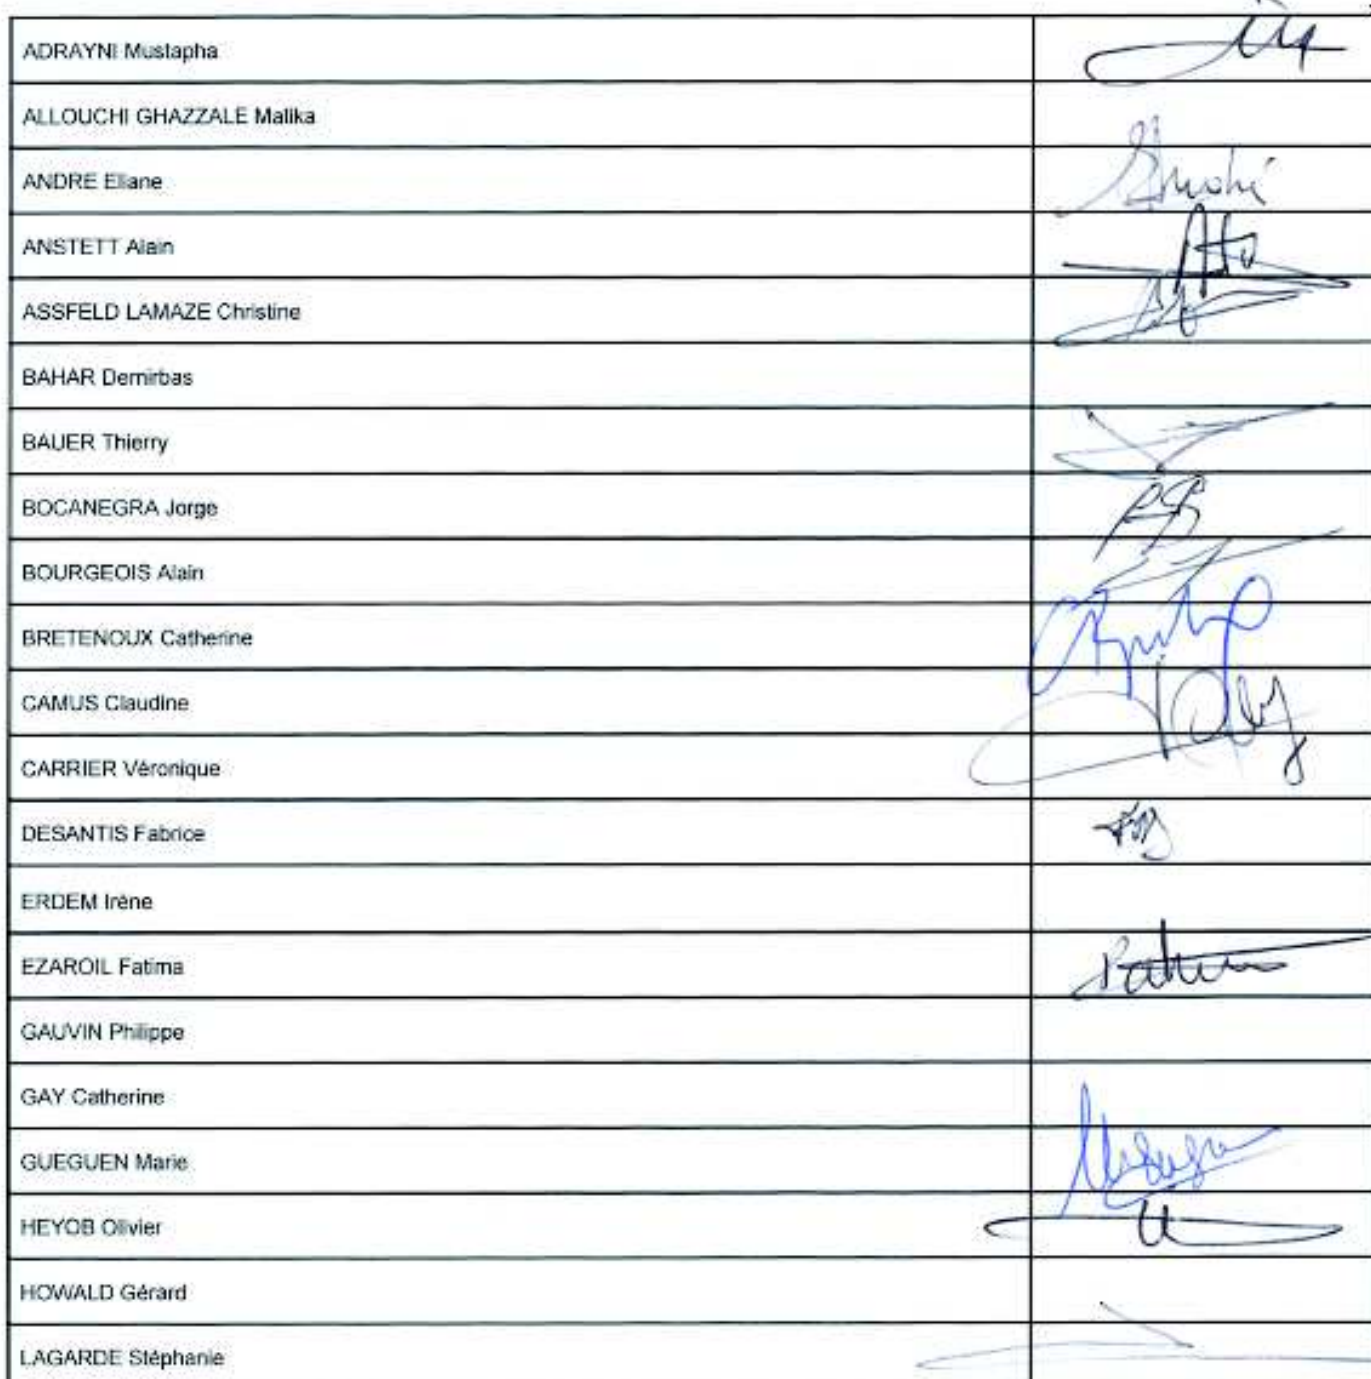 ADRAYNI Mustapha
ALLOUCHI GHAZZALE Malika
ANDRE Eliane
ANSTETT Alain
ASSFELD LAMAZE Christine
BAHAR Demirbas
BAUER Thierry
BOCANEGRA Jorge
BOURGEOIS Alain
BRETENOUX Catherine
CAMUS Claudine
CARRIER Véronique
DESANTIS Fabrice
ERDEM Irène
EZAROIL Fatima
GAUVIN Philippe
GAY Catherine
GUEGUEN Marie
HEYOB Olivier
HOWALD Gérard
LAGARDE Stéphanie